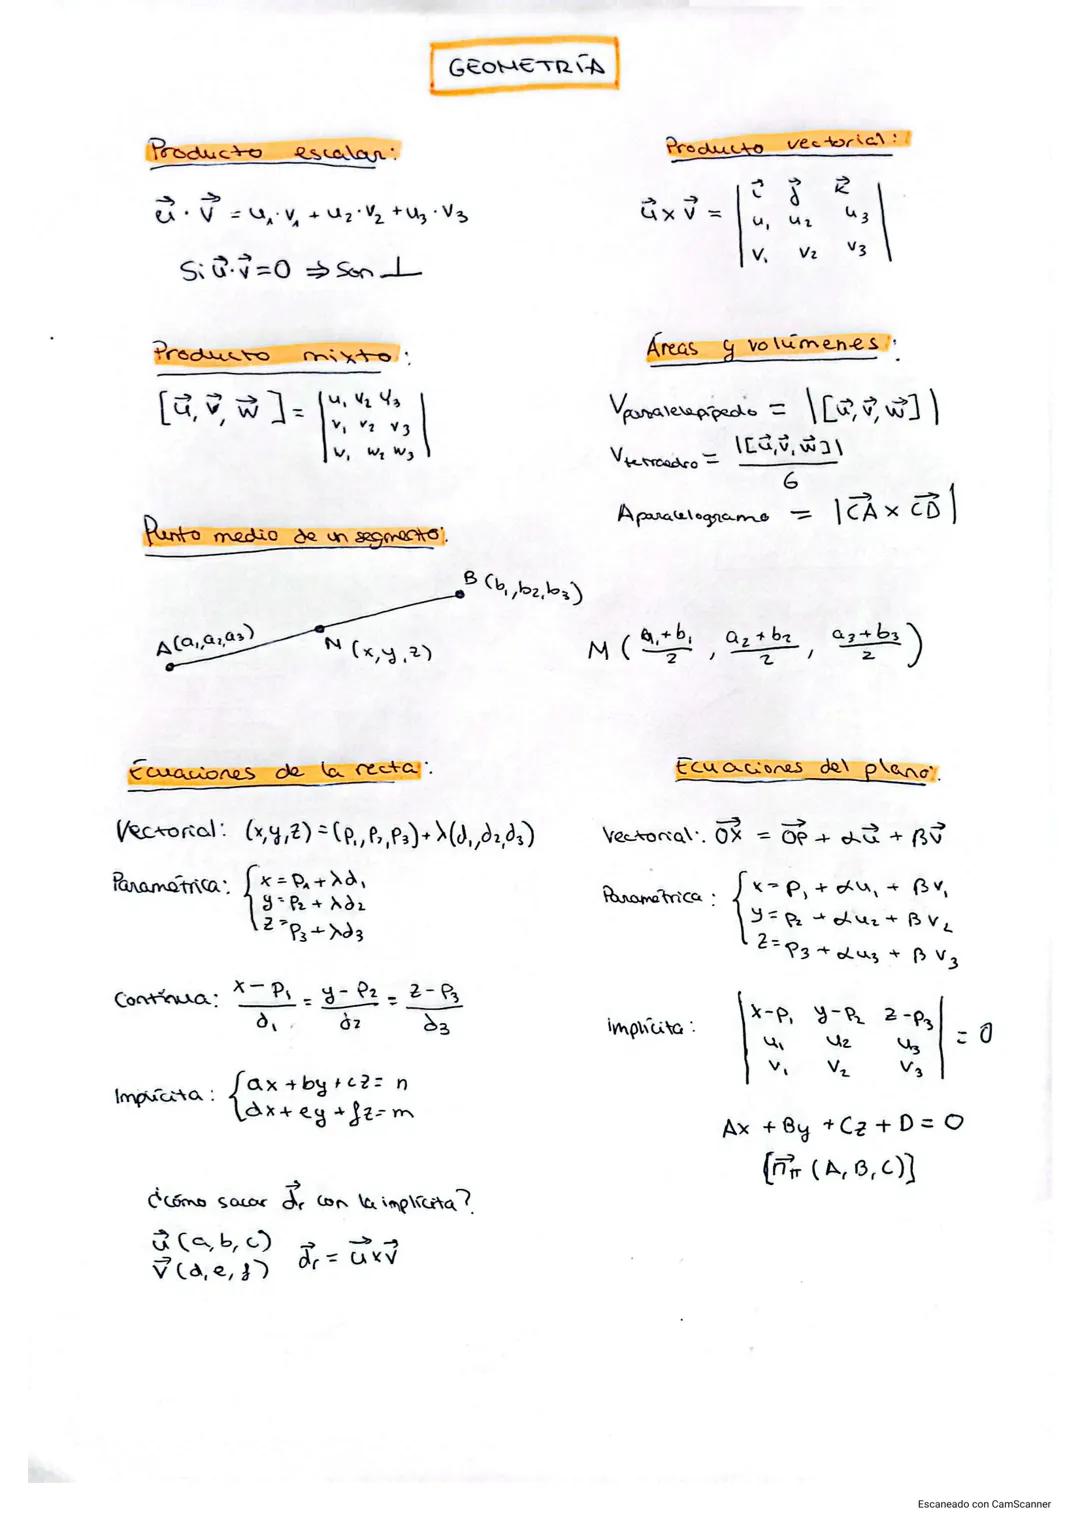 GEOMETRÍA
Producto escalar:
u⃗ · v⃗ = u₁·v₁ + u₂·v₂ + u₃·v₃
Si u⃗·v⃗=0 ⇒ Son ⊥
Producto vectorial:
u⃗ x v⃗ = | i⃗ j⃗ k⃗
u₁ u₂ u₃
v₁ v₂ v₃ |
Producto mixto:
[u⃗, v⃗, w⃗] = | u₁ u₂ u₃
v₁ v₂ v₃
w₁ w₂ w₃ |
Áreas y volúmenes:
Vparalelepípedo = |[u⃗, v⃗, w⃗]|
Vtetraedro = |[u⃗, v⃗, w⃗]| / 6
Aparalelogramo = |CA⃗ x CD⃗|
Punto medio de un segmento:
B (b₁, b₂, b₃)
A (a₁, a₂, a₃)
M (x, y, z)
M ( a₁+b₁ / 2 , a₂+b₂ / 2 , a₃+b₃ / 2 )
Ecuaciones de la recta:
Vectorial: (x,y,z) = (P₁, P₂, P₃) + λ(d₁, d₂, d₃)
Paramétrica: { x = P₁ + λd₁
y = P₂ + λd₂
z = P₃ + λd₃
Contínua: x - P₁ / d₁ = y - P₂ / d₂ = z - P₃ / d₃
Implícita: { ax + by + cz = n
dx + ey + fz = m
¿cómo sacar d⃗r con la implícita?
u⃗ (a, b, c)
v⃗ (d, e, f)
d⃗r = u⃗ x v⃗
Ecuaciones del plano:
Vectorial: OX⃗ = OP⃗ + αu⃗ + βv⃗
Paramétrica: { x = P₁ + αu₁ + βv₁
y = P₂ + αu₂ + βv₂
z = P₃ + αu₃ + βv₃
implícita: | x-P₁ y-P₂ z-P₃
u₁ u₂ u₃
v₁ v₂ v₃ | = 0
Ax + By + Cz + D = 0
[n⃗π (A, B, C)]
Escaneado con CamScanner